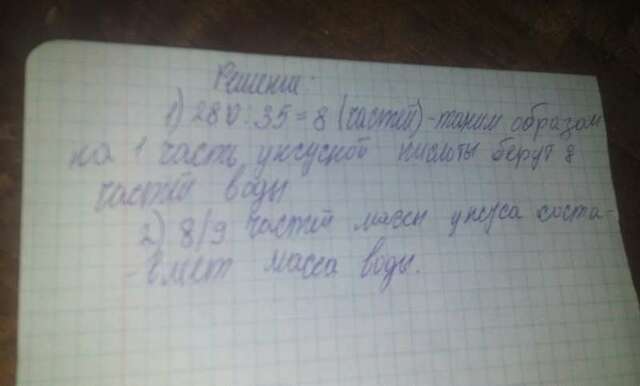 Решение:
1) 280:35=8 (частей) - таким образом
на 1 часть уксусной кислоты берут 8
частей воды
2) 8/9 частей массы уксуса соста-
-вляет масса воды.